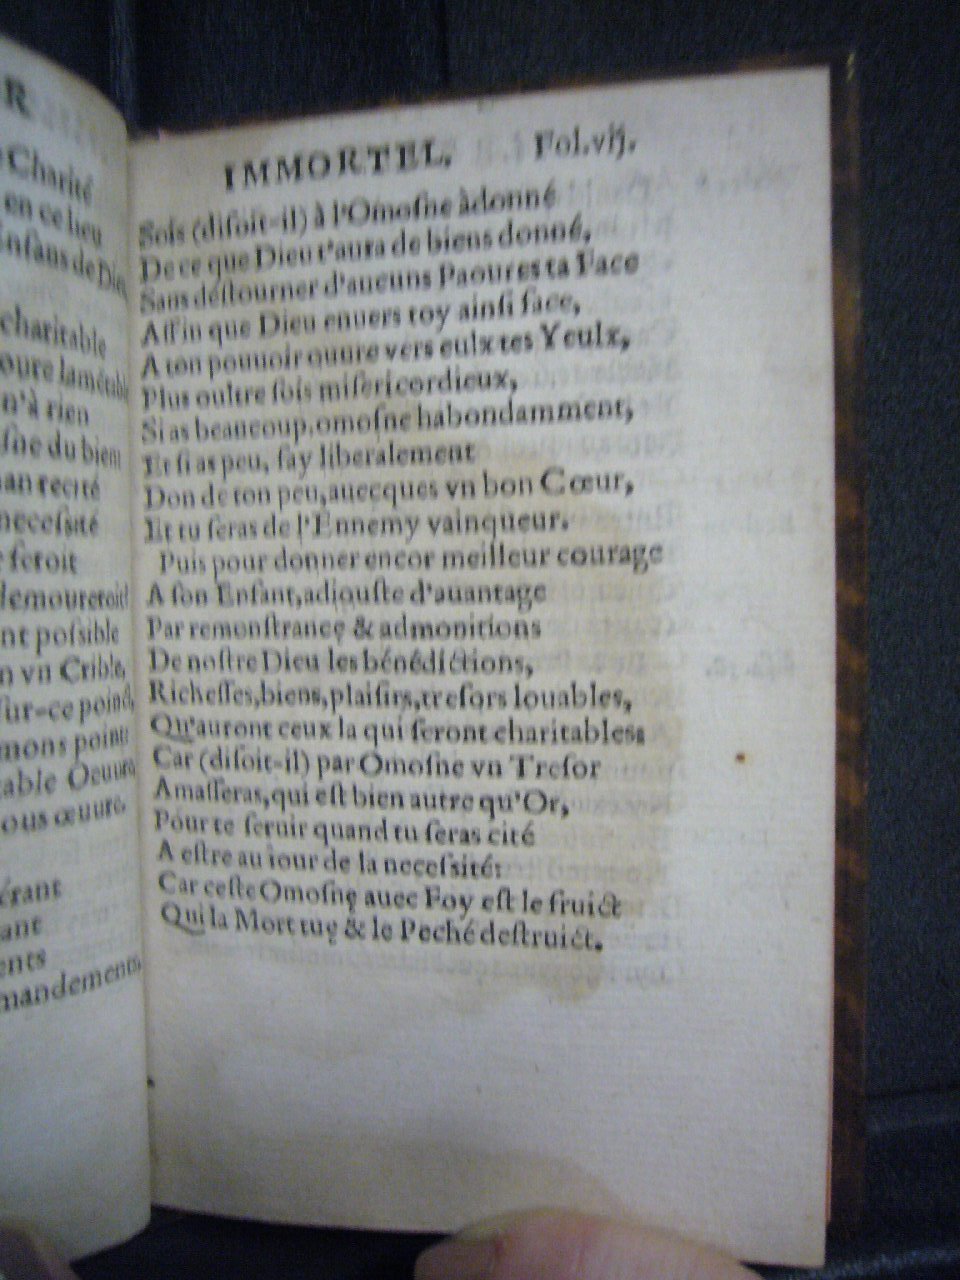 R
Charité
en ce lieu
Enfans de Dieu
charitable
oure lamétable
n'à rien
ſne du bien
an recité
neceſsité
ſeroit
demoureroit
nt poſsible
n vn Crible,
ſur-ce poinct,
mons point:
table Oeuure
ous œuure.
érant
ant
ents
mandements.
IMMORTEL. Fol.vij.
Sois (diſoit-il) à l'Omoſne àdonné
De ce que Dieu t'aura de biens donné,
Sans déſtourner d'aucuns Paoures ta Face
Affin que Dieu enuers toy ainſi face,
A ton pouuoir ouure vers eulx tes Yeulx,
Plus oultre ſois miſericordieux,
Si as beaucoup, omoſne habondamment,
Et ſi as peu, fay liberalement
Don de ton peu, auecques vn bon Cœur,
Et tu ſeras de l'Ennemy vainqueur.
Puis pour donner encor meilleur courage
A ſon Enfant, adiouſte d'auantage
Par remonſtrance & admonitions
De noſtre Dieu les bénédictions,
Richeſſes, biens, plaiſirs, treſors louables,
Qu'auront ceux la qui ſeront charitables:
Car (diſoit-il) par Omoſne vn Treſor
Amaſſeras, qui eſt bien autre qu'Or,
Pour te ſeruir quand tu ſeras cité
A eſtre au iour de la neceſsité:
Car ceſte Omoſne auec Foy eſt le fruict
Qui la Mort tue & le Peché deſtruict.